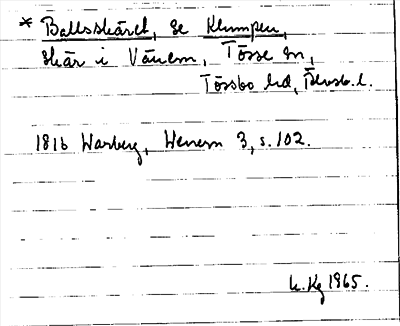 * Ballsskäret, se Klumpen,
skär i Vänern, Tösse sn,
Tössbo hd, Älvsb. l.
1816 Warberg, Wenern 3, s. 102.
1965.